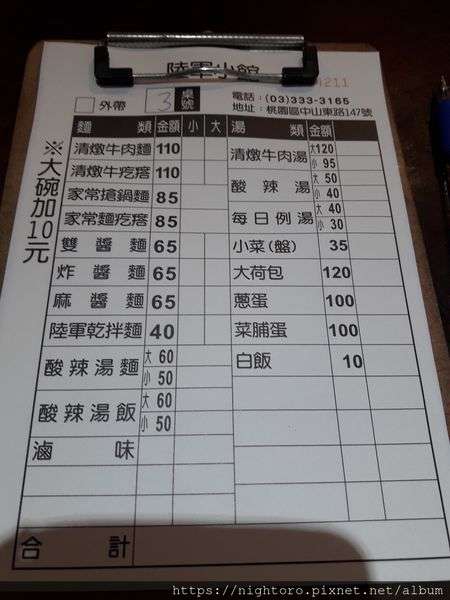 陸軍小館
0211
外帶 3 桌號
電話:(03)333-3165
地址:桃園區中山東路147號
※大碗加10元
麵類 金額 小 大
清燉牛肉麵 110
清燉牛疙瘩 110
家常搶鍋麵 85
家常麵疙瘩 85
雙醬麵 65
炸醬麵 65
麻醬麵 65
陸軍乾拌麵 40
酸辣湯麵 大60 小50
酸辣湯飯 大60 小50
滷味
湯類 金額
清燉牛肉湯 大120 小95
酸辣湯 大50 小40
每日例湯 大40 小30
小菜(盤) 35
大荷包 120
蔥蛋 100
菜脯蛋 100
白飯 10
合計
https://nightoro.pixnet.net/album